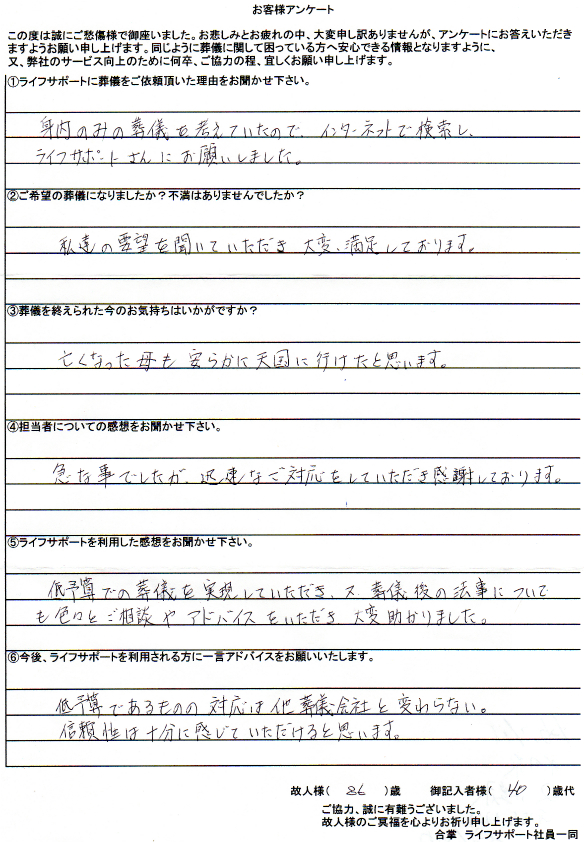 お客様アンケート
この度は誠にご愁傷様で御座いました。お悲しみとお疲れの中、大変申し訳ありませんが、アンケートにお答えいただき
ますようお願い申し上げます。同じように葬儀に関して困っている方へ安心できる情報となりますように、
又、弊社のサービス向上のために何卒、ご協力の程、宜しくお願い申し上げます。
①ライフサポートに葬儀をご依頼頂いた理由をお聞かせ下さい。
身内のみの葬儀を考えていたので、インターネットで検索し、
ライフサポートさんにお願いしました。
②ご希望の葬儀になりましたか？不満はありませんでしたか？
私達の要望を聞いていただき 大変、満足しております。
③葬儀を終えられた今のお気持ちはいかがですか？
亡くなった母も 安らかに天国に行けたと思います。
④担当者についての感想をお聞かせ下さい。
急な事でしたが、迅速なご対応をしていただき感謝しております。
⑤ライフサポートを利用した感想をお聞かせ下さい。
低予算での葬儀を実現していただき、又、葬儀後の法事について
も色々とご相談やアドバイスをいただき、大変助かりました。
⑥今後、ライフサポートを利用される方に一言アドバイスをお願いいたします。
低予算であるものの 対応は他葬儀会社と変わらない。
信頼性は十分に感じていただけると思います。
故人様( 86 )歳 御記入者様( 40 )歳代
ご協力、誠に有難うございました。
故人様のご冥福を心よりお祈り申し上げます。
合掌 ライフサポート社員一同